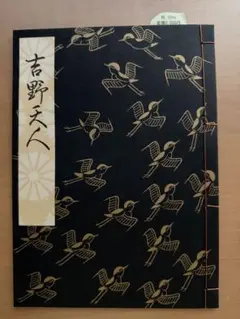 吉野天人